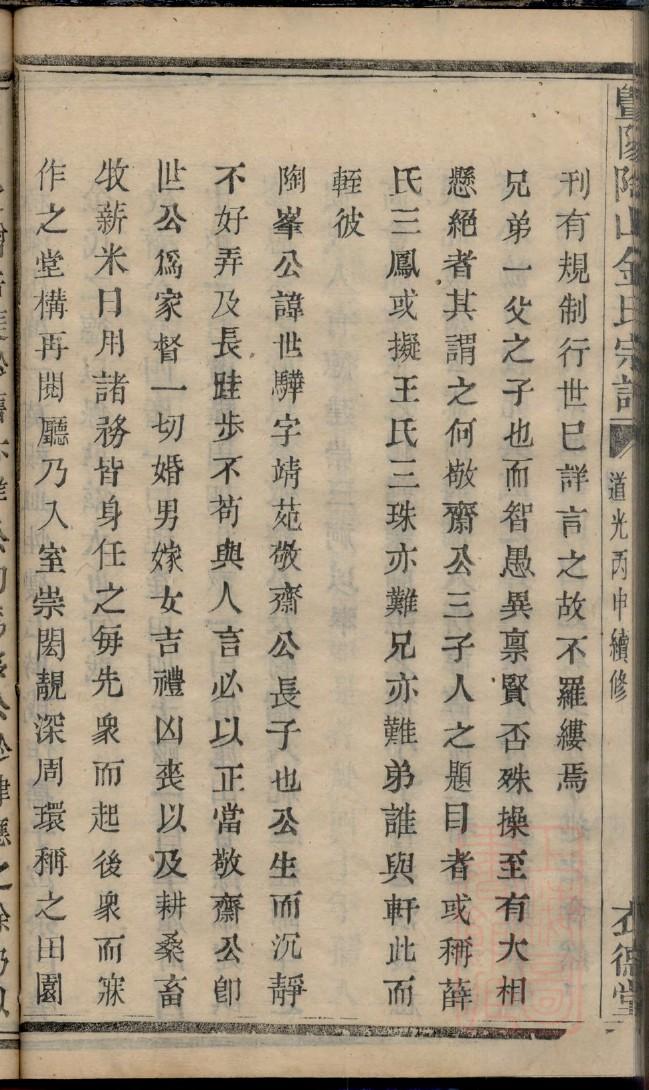 暨陽陶山金氏宗譜
道光丙申續修
衣德堂
刊有規制行世已詳言之故不羅縷焉
兄弟一父之子也而智愚異稟賢否殊操至有大相
懸絕者其謂之何敬齋公三子人之題目者或稱薛
氏三鳳或擬王氏三珠亦難兄亦難弟誰與軒此而
輊彼
陶峯公諱世驊字靖苑敬齋公長子也公生而沉靜
不好弄及長跬步不苟與人言必以正當敬齋公卽
世公爲家督一切婚男嫁女吉禮凶喪以及耕桑畜
牧薪米日用諸務皆身任之每先衆而起後衆而寐
作之堂構再閱廳乃入室崇閎靚深周環稱之田園